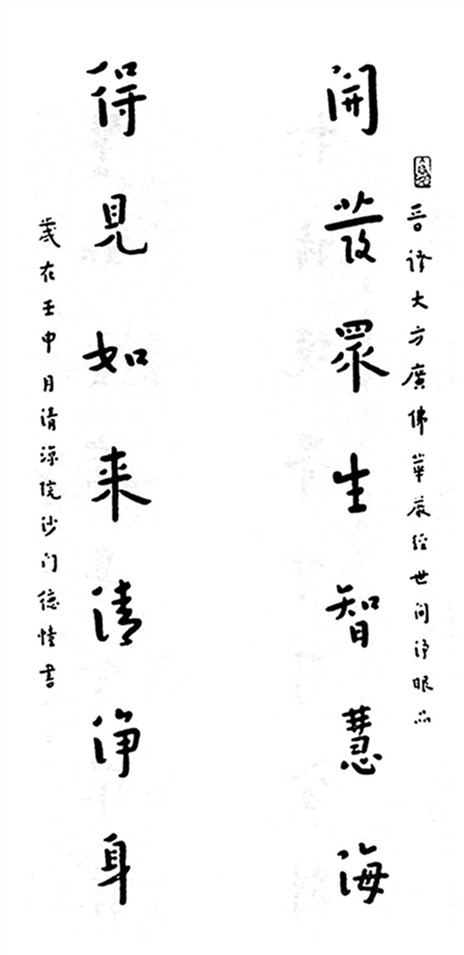 晉譯大方廣佛華嚴經世間淨眼品
開發眾生智慧海
得見如来清淨身
歲在壬申月清涼院沙門德書